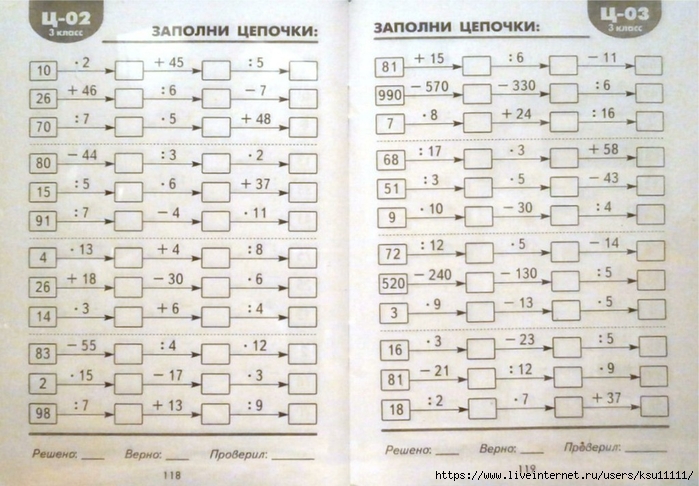 Ц-02
3 класс
ЗАПОЛНИ ЦЕПОЧКИ:
10 · 2 + 45 : 5
26 + 46 : 6 − 7
70 : 7 · 5 + 48
80 − 44 : 3 · 2
15 : 5 · 6 + 37
91 : 7 − 4 · 11
4 · 13 + 4 : 8
26 + 18 − 30 · 6
14 · 3 + 6 : 4
83 − 55 : 4 · 12
2 · 15 − 17 · 3
98 : 7 + 13 : 9
Решено: ___ Верно: ___ Проверил: ___
118
Ц-03
3 класс
ЗАПОЛНИ ЦЕПОЧКИ:
81 + 15 : 6 − 11
990 − 570 − 330 : 6
7 · 8 + 24 : 16
68 : 17 · 3 + 58
51 : 3 · 5 − 43
9 · 10 − 30 : 4
72 : 12 · 5 − 14
520 − 240 − 130 : 5
3 · 9 − 13 · 5
16 · 3 − 23 : 5
81 − 21 : 12 · 9
18 : 2 · 7 + 37
Решено: ___ Верно: ___ Проверил: ___
119
https://www.liveinternet.ru/users/ksu11111/